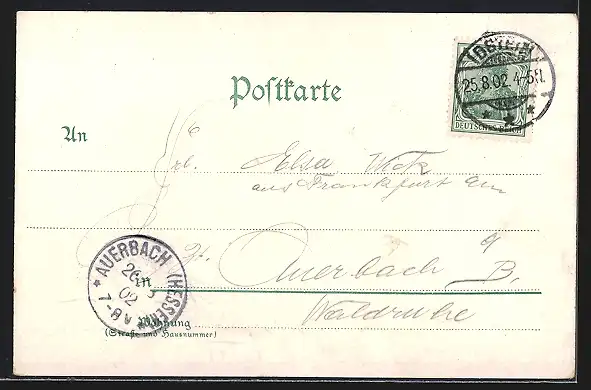 IDSTEIN
25.8.02 4-5N.
DEUTSCHES REICH
Postkarte
An
Frl. Elsa Wick
aus Frankfurt am
Zt. Auerbach a/B.
in
Waldruhe
Wohnung
(Straße und Hausnummer)
AUERBACH (HESSEN)
26 8
02